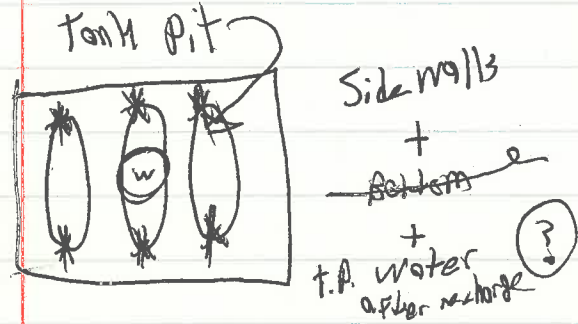 Tank Pit
W
Side walls
+
Bottom
+
t.P. Water
after recharge
?